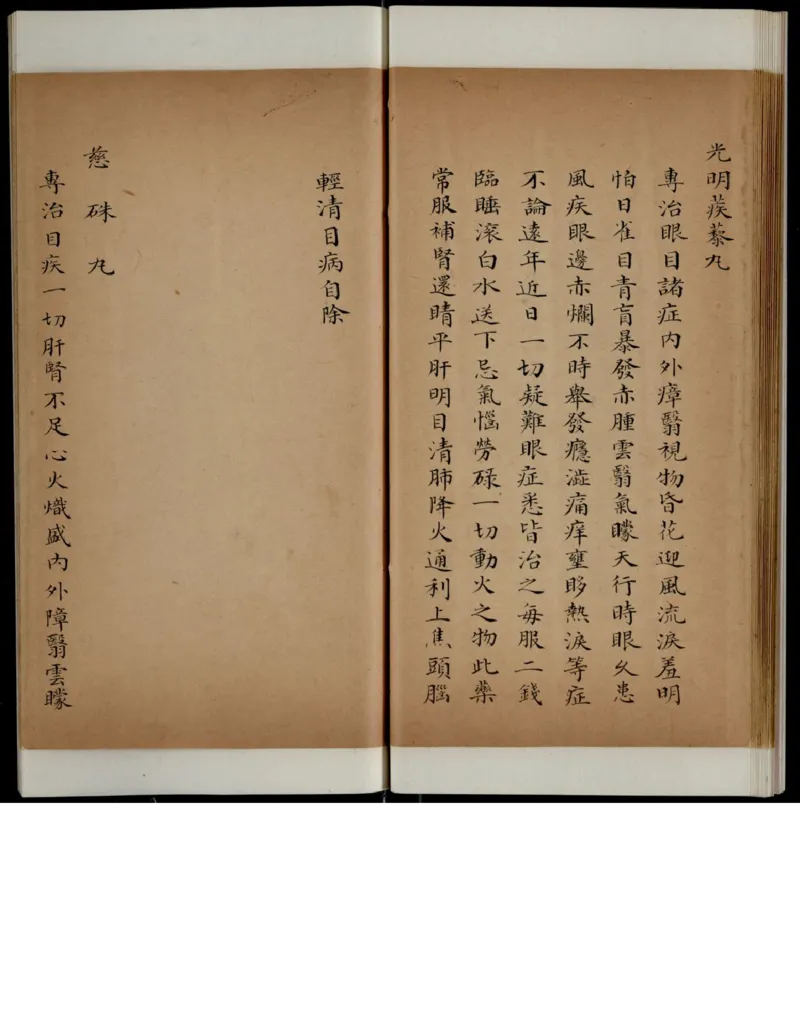 光明蒺藜丸
專治眼目諸症内外瘴翳視物昏花迎風流淚羞明
怕日雀目青盲暴發赤腫雲翳氣矇天行時眼久患
風疾眼邊赤爛不時舉發癮澁痛痒壅眵熱淚等症
不論遠年近日一切疑難眼症悉皆治之每服二錢
臨睡滚白水送下忌氣惱勞碌一切動火之物此藥
常服補腎還睛平肝明目清肺降火通利上焦頭腦
輕清目病自除
慈硃丸
專治目疾一切肝腎不足心火熾盛内外障翳雲矇